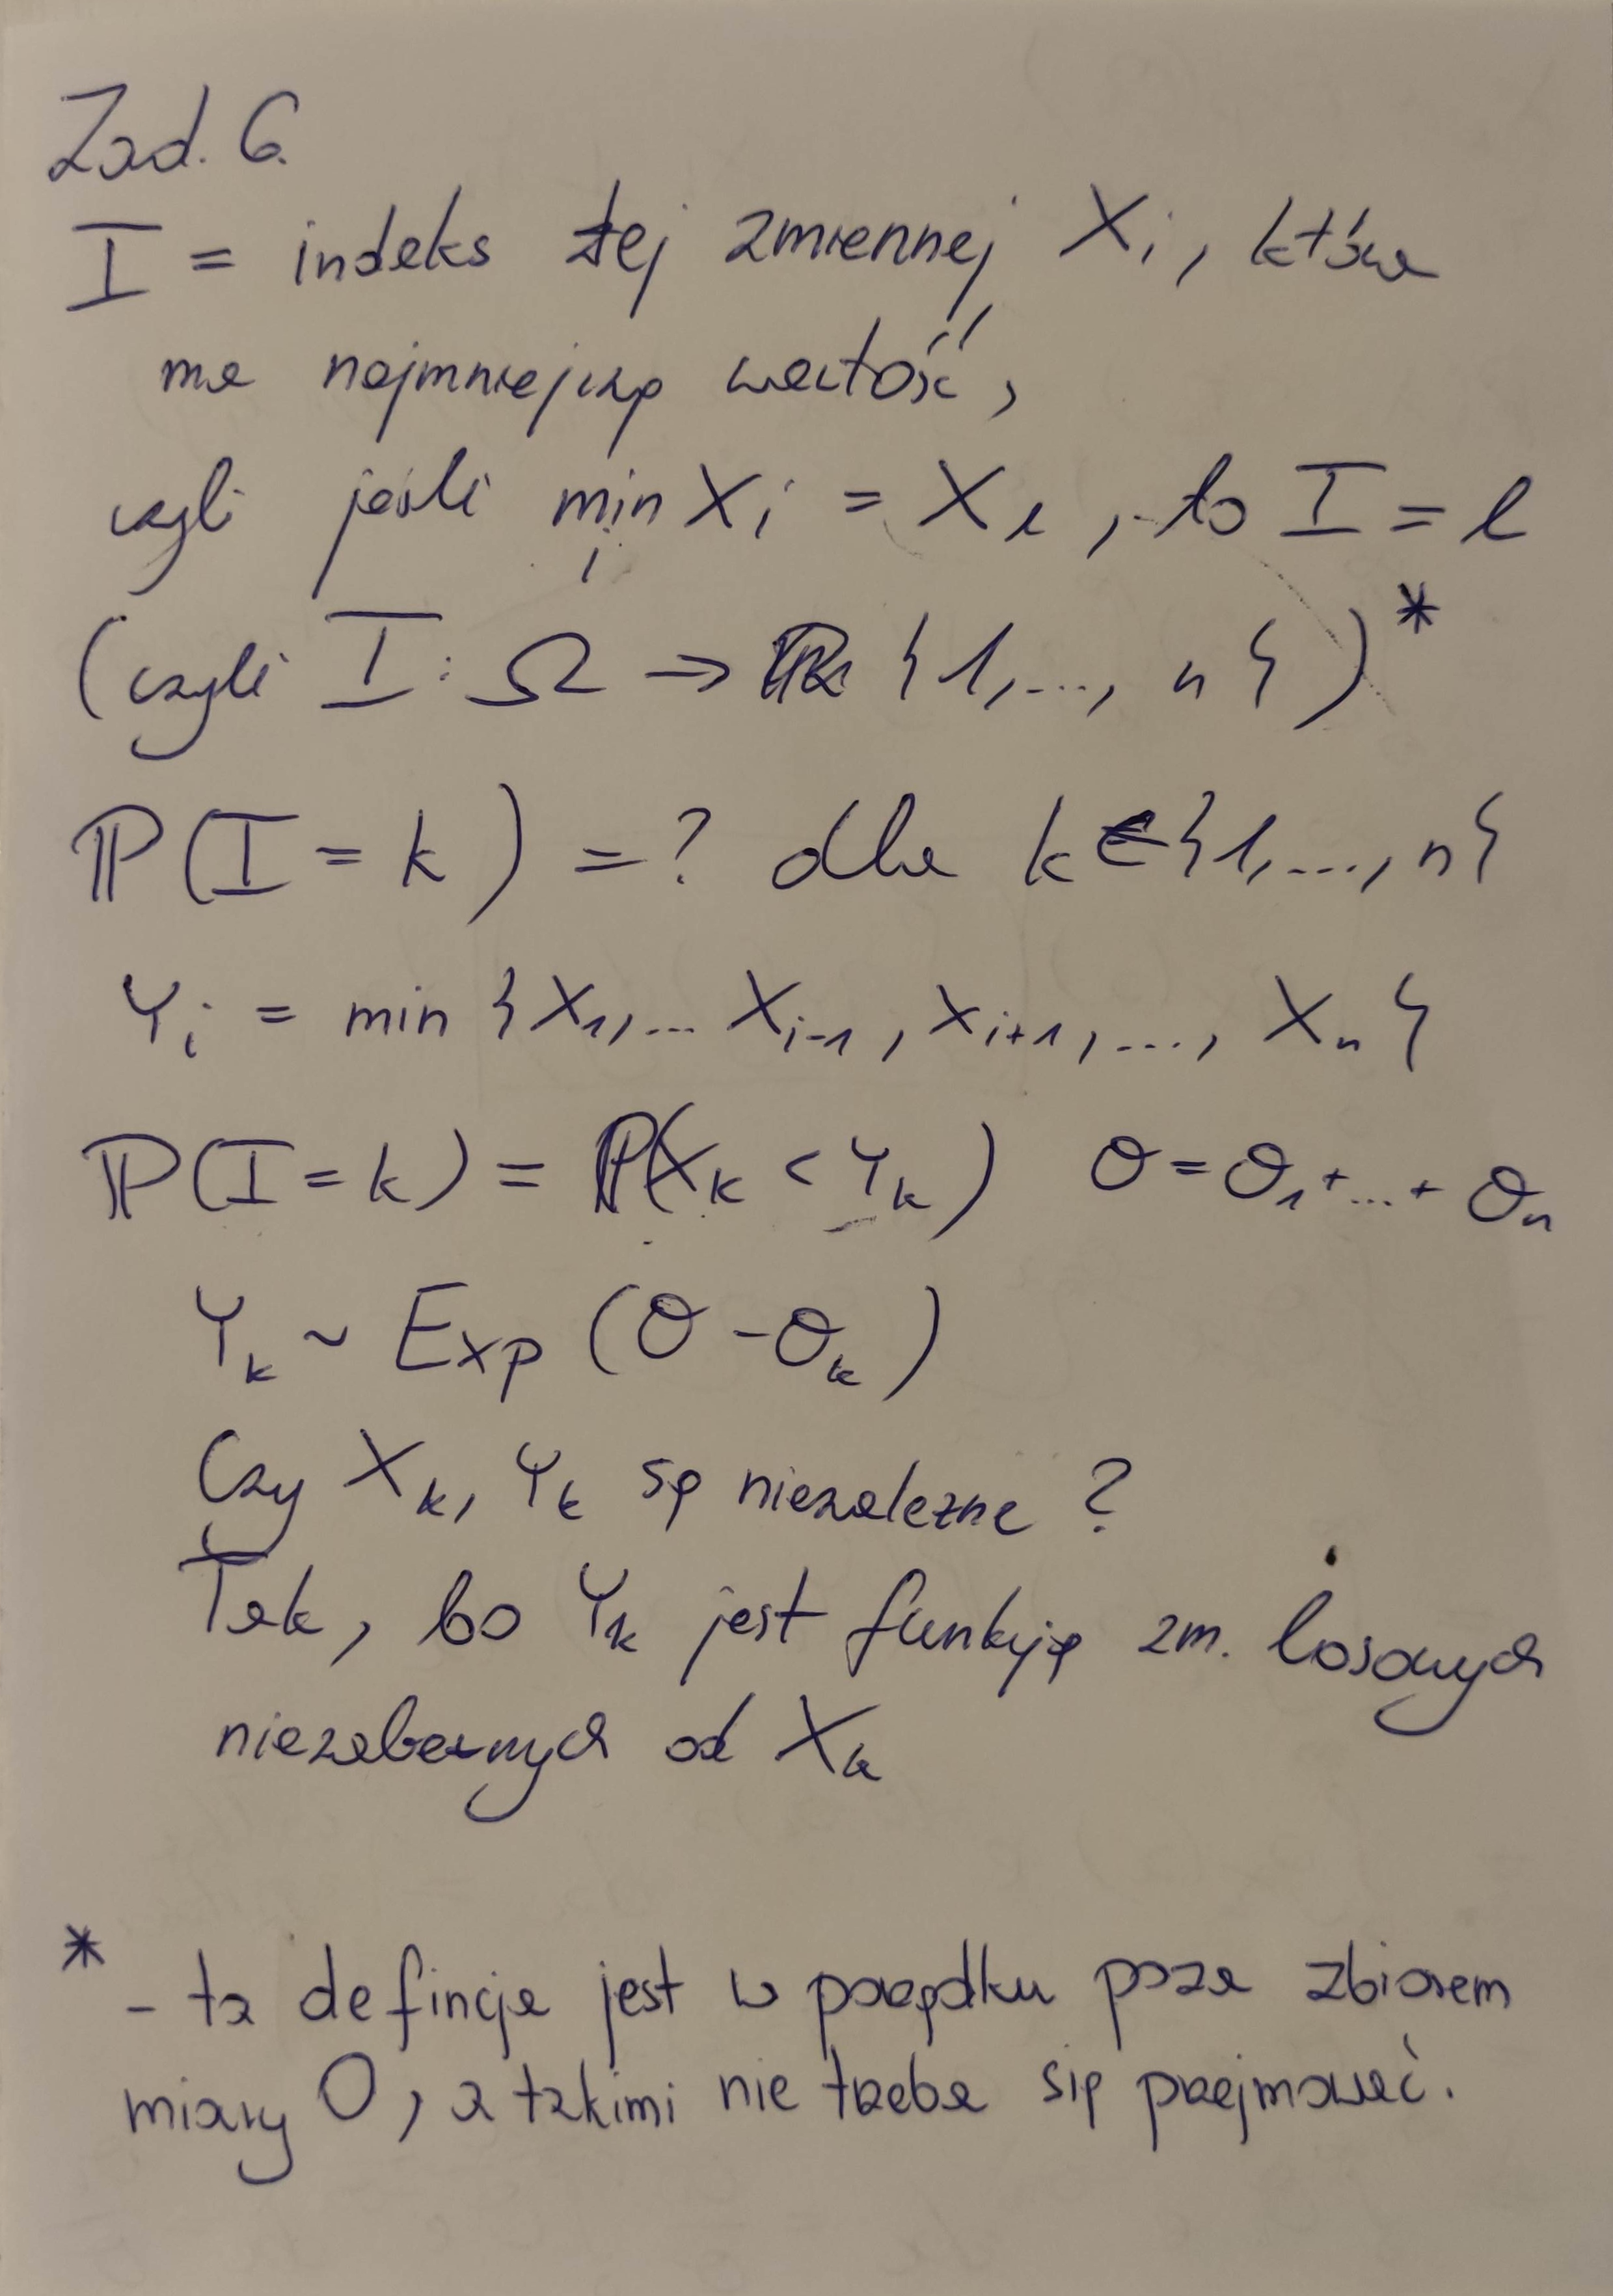 Zad. 6.
I = indeks tej zmiennej Xᵢ, która
ma najmniejszą wartość,
czyli jeśli min Xᵢ = X_l, to I = l
i
(czyli I: Ω → {1,..., n})*
ℙ(I = k) = ? dla k ∈ {1,..., n}
Yᵢ = min {X₁,... Xᵢ₋₁, Xᵢ₊₁, ..., Xₙ}
ℙ(I = k) = ℙ(Xₖ < Yₖ) θ = θ₁ + ... + θₙ
Yₖ ~ Exp (θ - θₖ)
Czy Xₖ, Yₖ są niezależne ?
Tak, bo Yₖ jest funkcją zm. losowych
niezależnych od Xₖ
* - ta defincja jest w porządku poza zbiorem
miary 0, a takimi nie trzeba się przejmować.